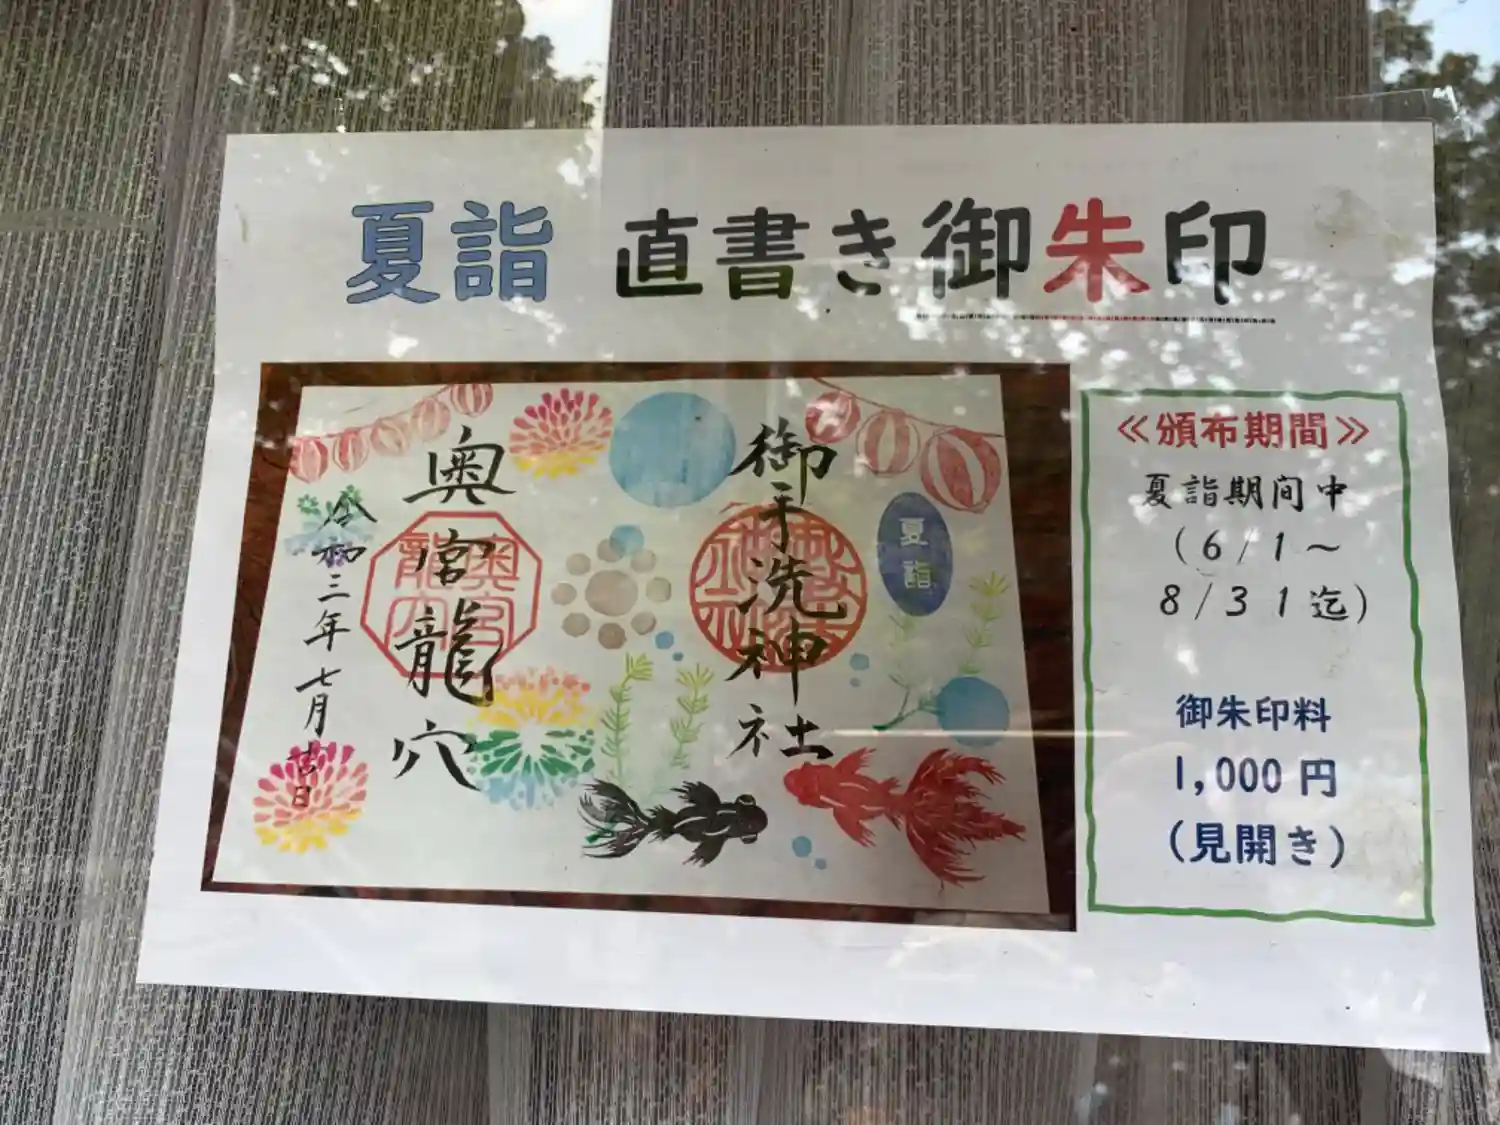 夏詣 直書き御朱印
御手洗神社
夏詣
奥宮龍穴
奥宮龍穴
令和三年七月七日
≪頒布期間≫
夏詣期间中
(6/1～
8/31迄)
御朱印料
1,000円
(見開き)